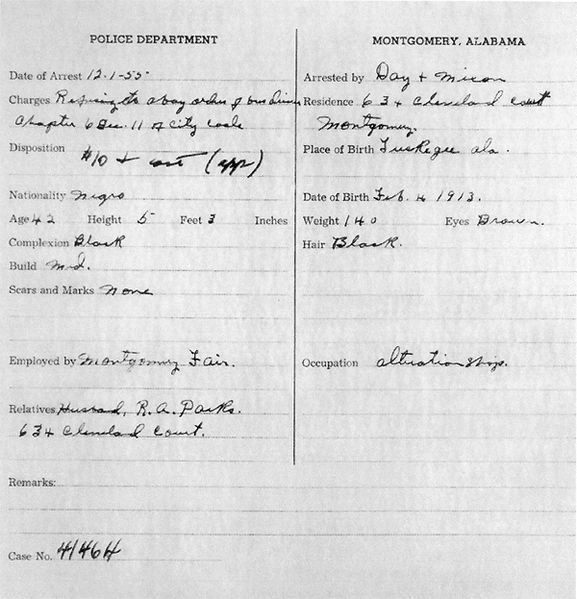 POLICE DEPARTMENT
MONTGOMERY, ALABAMA
Date of Arrest 12-1-55
Arrested by Day + Mixon
Charges Refusing to obay orders of bus driver
Residence 634 Cleveland Court
Chapter 6 Sec. 11 of City Code
Montgomery.
Disposition $10 + cost (app)
Place of Birth Tuskegee ala.
Nationality Negro
Date of Birth Feb. 4 1913.
Age 42 Height 5 Feet 3 Inches
Weight 140 Eyes Brown.
Complexion Black
Hair Black.
Build Med.
Scars and Marks none
Employed by Montgomery Fair.
Occupation alteration shop.
Relatives Husband, R.A. Parks.
634 Cleveland Court.
Remarks:
Case No. 41464